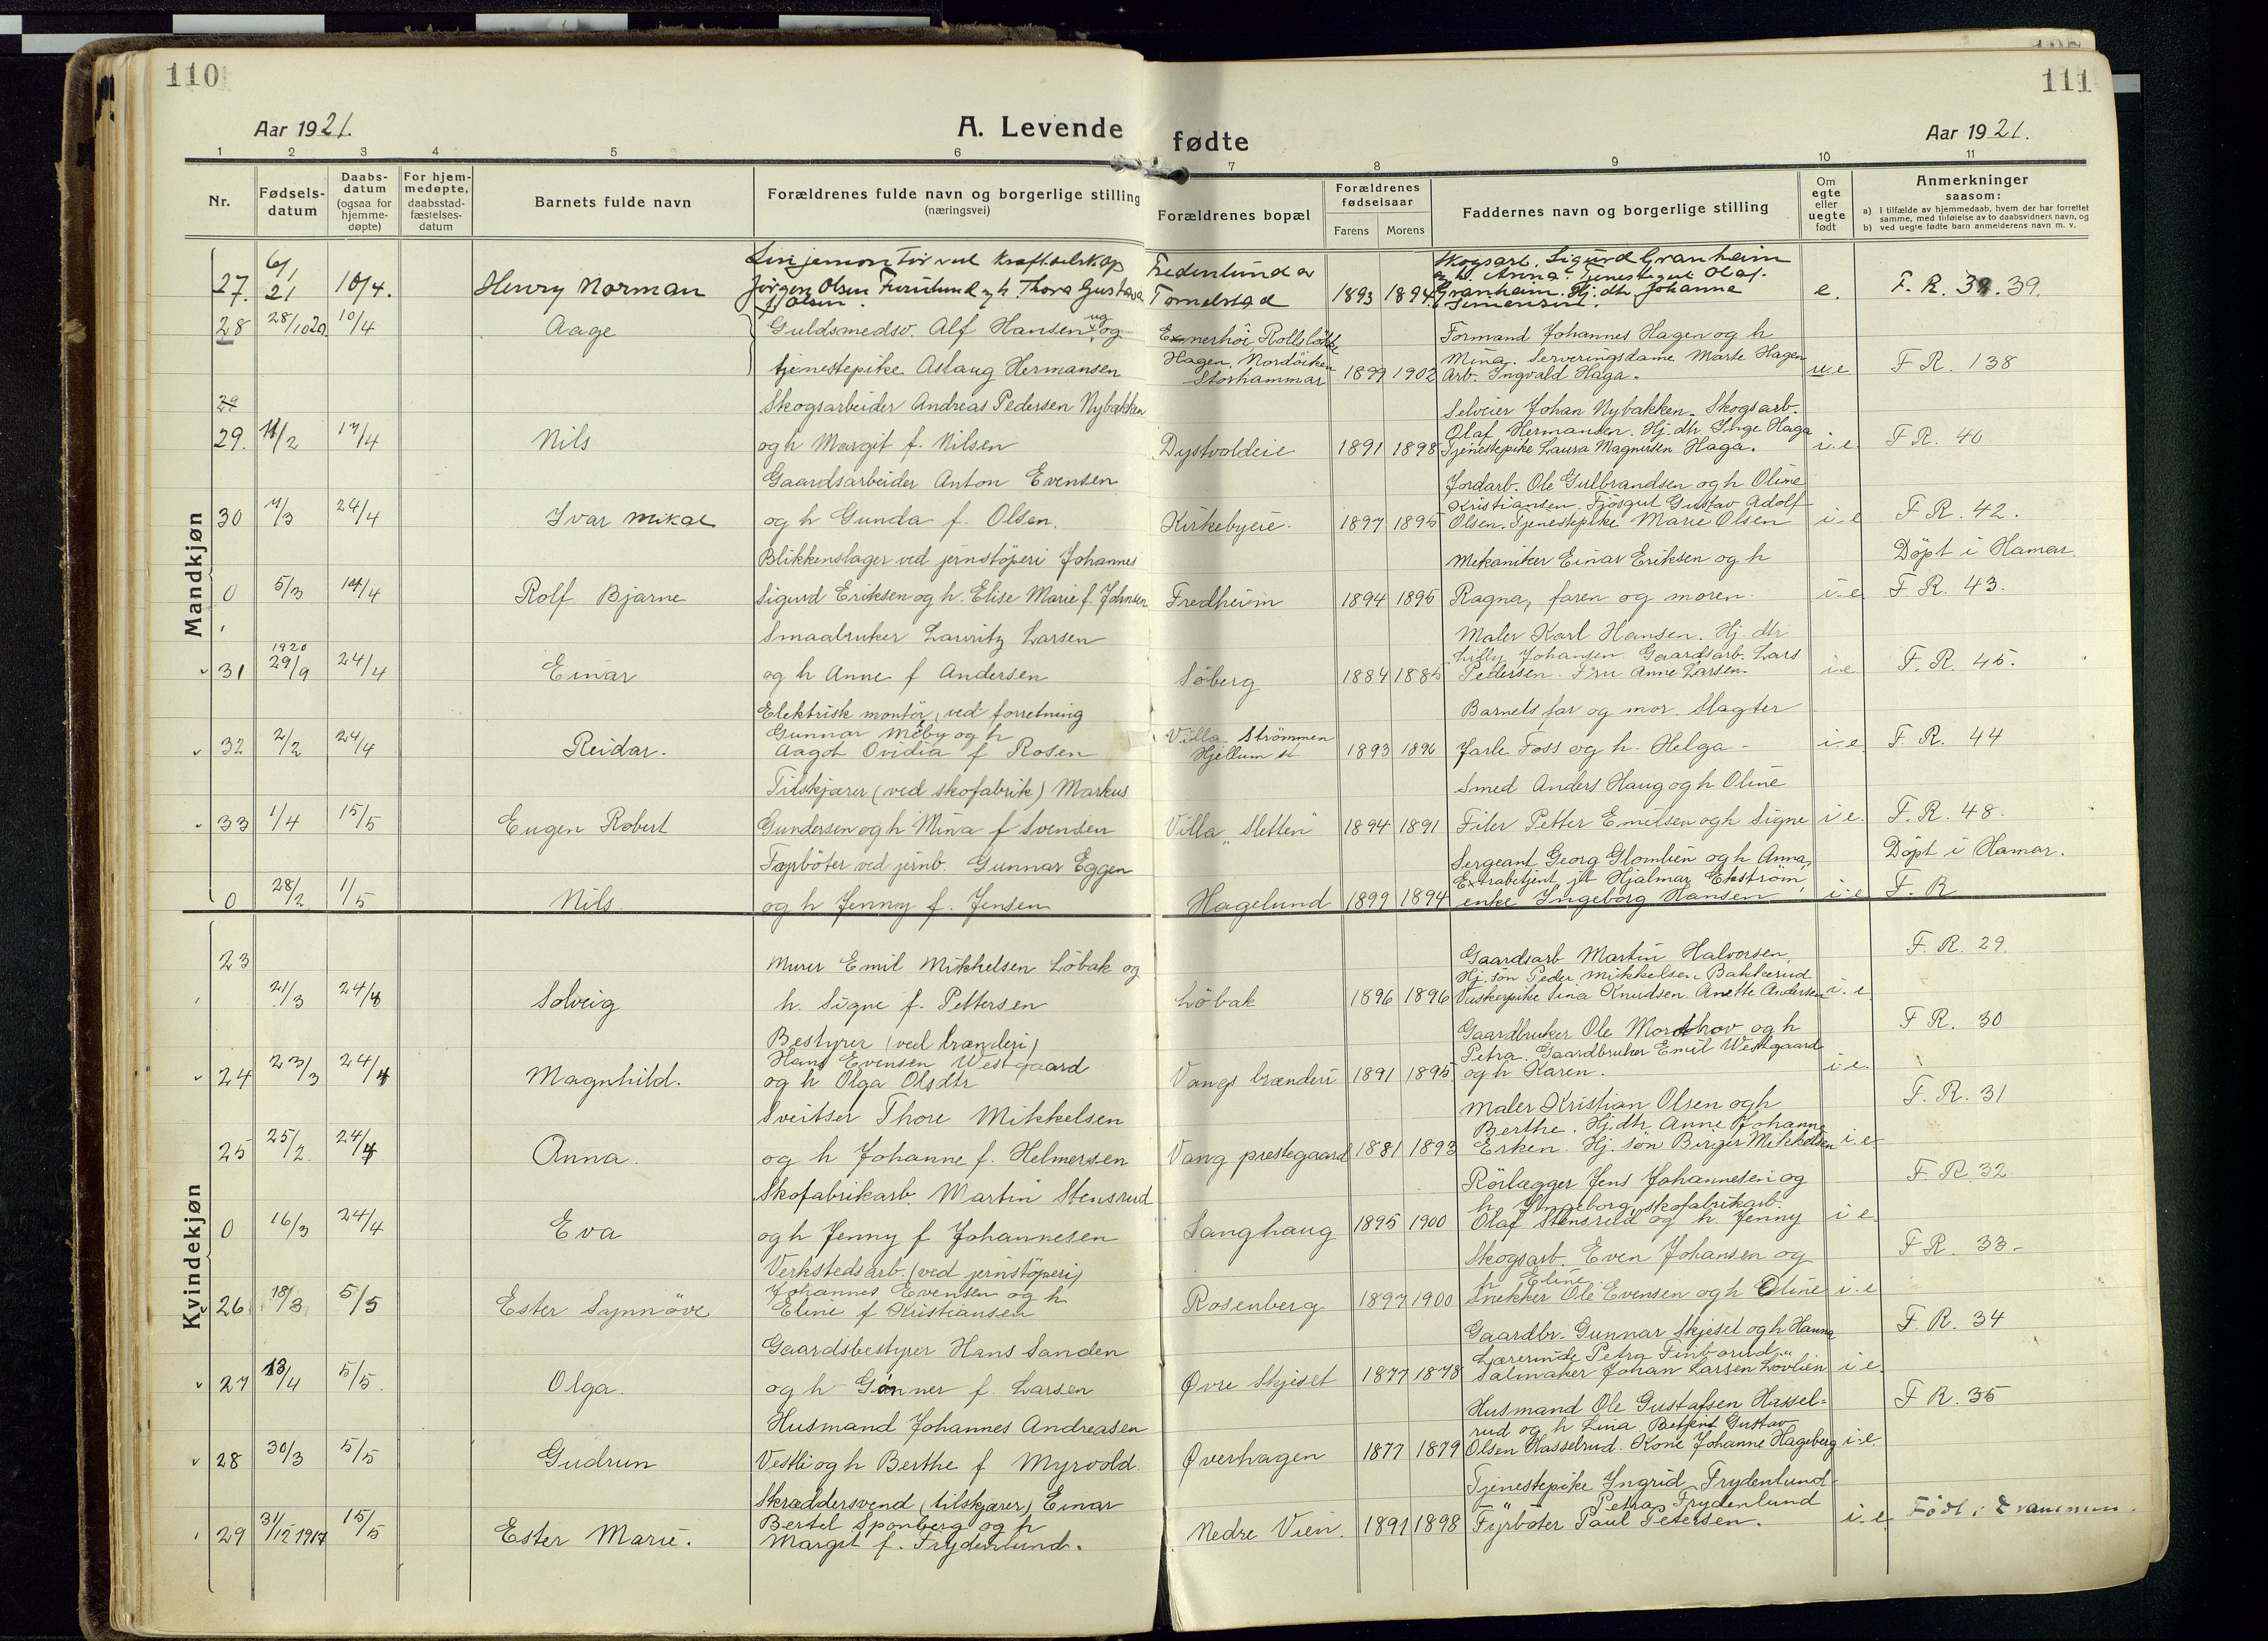 110
111
Aar 1921.
A. Levende fødte
Aar 1921.
1 2 3 4 5 6 7 8 9 10 11
Nr.
Fødsels-
datum
Daabs-
datum
(ogsaa for
hjemme-
døpte)
For hjem-
medøpte,
daabsstad-
fæstelses-
datum
Barnets fulde navn
Forældrenes fulde navn og borgerlige stilling
(næringsvei)
Forældrenes bopæl
Forældrenes
fødselsaar
Farens Morens
Faddernes navn og borgerlige stilling
Om
egte
eller
uegte
født
Anmerkninger
saasom:
a) i tilfælde av hjemmedaab, hvem der har forrettet
samme, med tilføielse av to daabsvidners navn, og
b) ved uegte fødte barn anmelderens navn m. v.
Mandkjøn
27. 6/1 21 10/4. Henry Norman
Linjemontør ved kraftselskap
Jörgen Olsen Furulund og h. Thora Gustava
f. Olsen.
Fredenlund av
Tomelstad
1893 1894
Skogsarb. Sigurd Granheim
og h. Anna. Tjenestegut Olaf
Granheim. Hj. dtr. Johanne
Simensen.
e. F. R. 39.
28 28/10 20 10/4 Aage
Guldsmedsv. Alf Hansen og
tjenestepike Aslaug Hermansen
Exnerhöi, Rollsløkke
Hagen, Nordviken
Storhammar
1899 1902
Formand Johannes Hagen og h
Mina. Serveringsdame Marte Hagen
Arb. Ingvald Haga.
u.e F R. 138
29
29. 11/2 17/4 Nils
Skogsarbeider Andreas Pedersen Nybakken
og h Margit f. Nilsen
Dystvoldeie
1891 1898
Selveier Johan Nybakken. Skogsarb.
Olaf Hermansen. Hj. dtr. Inge Haga
Tjenestepike Laura Magnussen Haga.
i.e. F R. 40
30 7/3 24/4 Ivar Mikal
Gaardsarbeider Anton Evensen
og h Gunda f. Olsen.
Kirkebyeie.
1897 1895
Jordarb. Ole Gulbrandsen og h Oline
Kristiansen. Fjösgut Gustav Adolf
Olsen. Tjenestepike Marie Olsen
i.e F R. 42.
0 5/3 14/4 Rolf Bjarne
Blikkenslager ved jernstöperi Johannes
Sigurd Eriksen og h. Elise Marie f. Johnsen
Fredheim
1894 1895
Mekaniker Einar Eriksen og h
Ragna, faren og moren.
i.e
Döpt i Hamar.
F R. 43.
31 1920 29/9 24/4 Einar
Smaabruker Lauritz Larsen
og h Anne f Andersen
Söberg
1884 1885
Maler Karl Hansen. Hj. dtr
Lilly Johansen. Gaardsarb. Lars
Pedersen. Fru Anne Larsen.
i.e F. R. 45.
32 2/2 24/4 Reidar.
Elektrisk montör, ved forretning
Gunnar Meby og h
Aagot Ovidia f Rosen
Villa Strömmen
Hjellum st
1893 1896
Barnets far og mor. Slagter
Jarle Foss og h. Helga -
i.e. F. R. 44
33 1/4 15/5 Eugen Robert
Tilskjærer (ved skofabrik) Markus
Gundersen og h Mina f Svensen
Villa „Sletten"
1894 1891
Smed Anders Haug og h Oline
Filer Petter Emilsen og h Signe
i.e. F. R. 48.
0 28/2 1/5 Nils
Fyrböter ved jernb. Gunnar Eggen
og h Jenny f. Jensen
Hagelund
1899 1894
Sergeant Georg Glomlien og h Anna,
Extrabetjent jb Hjalmar Ekström,
enke Ingeborg Hansen
i.e
Döpt i Hamar.
F. R
Kvindekjøn
23 21/3 24/4 Solveig
Murer Emil Mikkelsen Löbak og
h. Signe f. Pettersen
Löbak
1896 1896
Gaardsarb Martin Halvorsen,
Hj. sön Peder Mikkelsen Bakkerud
Vaskerpike Sina Knudsen. Anette Andersen
i.e F. R. 29.
24 23/3 24/4 Magnhild.
Bestyrer (ved brænderi)
Hans Evensen Westgaard
og h Olga Olsdtr
Vangs brænderi
1891 1895
Gaardbruker Ole Mordthov og h
Petra. Gaardbruker Emil Westgaard
og h Karen.
i.e. F R. 30
25 25/2 24/4 Anna.
Sveitser Thore Mikkelsen
og h Johanne f. Helmersen
Vang prestegaard
1881 1893
Maler Kristian Olsen og h
Berthe. Hj. dtr. Anne Johanne
Erken. Hj. sön Birger Mikkelsen
i.e F. R. 31
0 16/3 24/4 Eva
Skofabrikarb. Martin Stensrud
og h Jenny f Johannesen
Sanghaug
1895 1900
Rörlægger Jens Johannesen og
h. Ingeborg, skofabrikarb.
Olaf Stensrud og h. Jenny
i.e F. R. 32
26 18/3 5/5 Ester Synnöve
Verkstedsarb. (ved jernstöperi)
Johannes Evensen og h
Eline f Kristiansen
Rosenberg
1897 1900
Skogsarb. Even Johansen og
h Eline.
Snekker Ole Evensen og h Oline
i.e F R. 33-
27 13/4 5/5. Olga.
Gaardsbestyrer Hans Sanden
og h Gunner f. Larsen
Øvre Skjeset
1877 1878
Gaardbr. Gunnar Skjeset og h Hanna
Lærerinde Petra Finborud
Salmaker Johan Larsen Lovlien
i.e. F. R. 34
28 30/3 5/5 Gudrun
Husmand Johannes Andreasen
Vestli og h Berthe f Myrvold.
Øverhagen
1877 1879
Husmand Ole Gustafsen Hassel-
rud og h Lina. Betjent Gustav
Olsen Hasselrud. Kone Johanne Hageberg
i.e. F R. 35
29 31/12 1917 15/5 Ester Marie.
Skræddersvend (tilskjærer) Einar
Bertel Sponberg og h
Margit f. Frydenlund.
Nedre Vien
1891 1898
Tjenestepike Ingrid Frydenlund
" Petra Frydenlund
Fyrböter Paul Petersen.
i.e. Födt i Drammen.